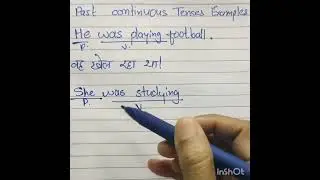 Past continuous Tenses Examples
He was playing football.
P. V.
वह खेल रहा था।
She was studying
P V
InShOt